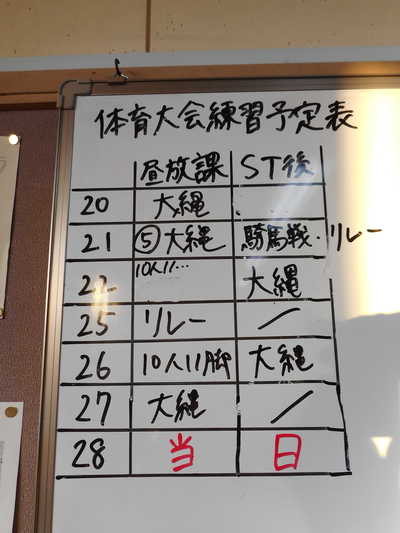 体育大会練習予定表
昼放課 ST後
20 大縄
21 ⑤大縄 騎馬戦・リレー
22 10人11… 大縄
25 リレー /
26 10人11脚 大縄
27 大縄 /
28 当 日